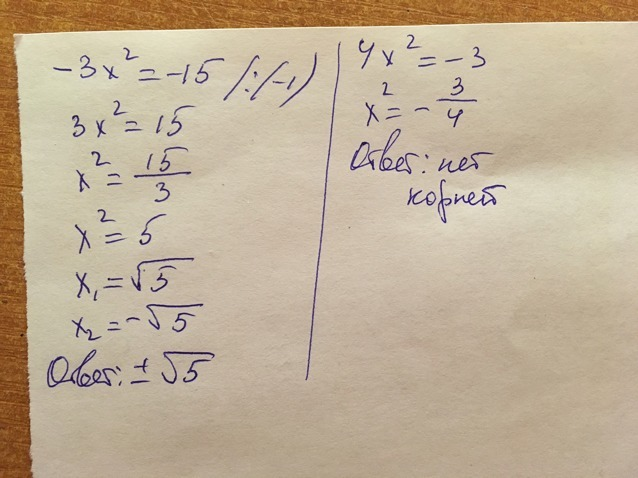 -3x² = -15 /:(-1)
3x² = 15
x² = 15/3
x² = 5
x₁ = √5
x₂ = -√5
Ответ: ± √5
4x² = -3
x² = - 3/4
Ответ: нет
корней